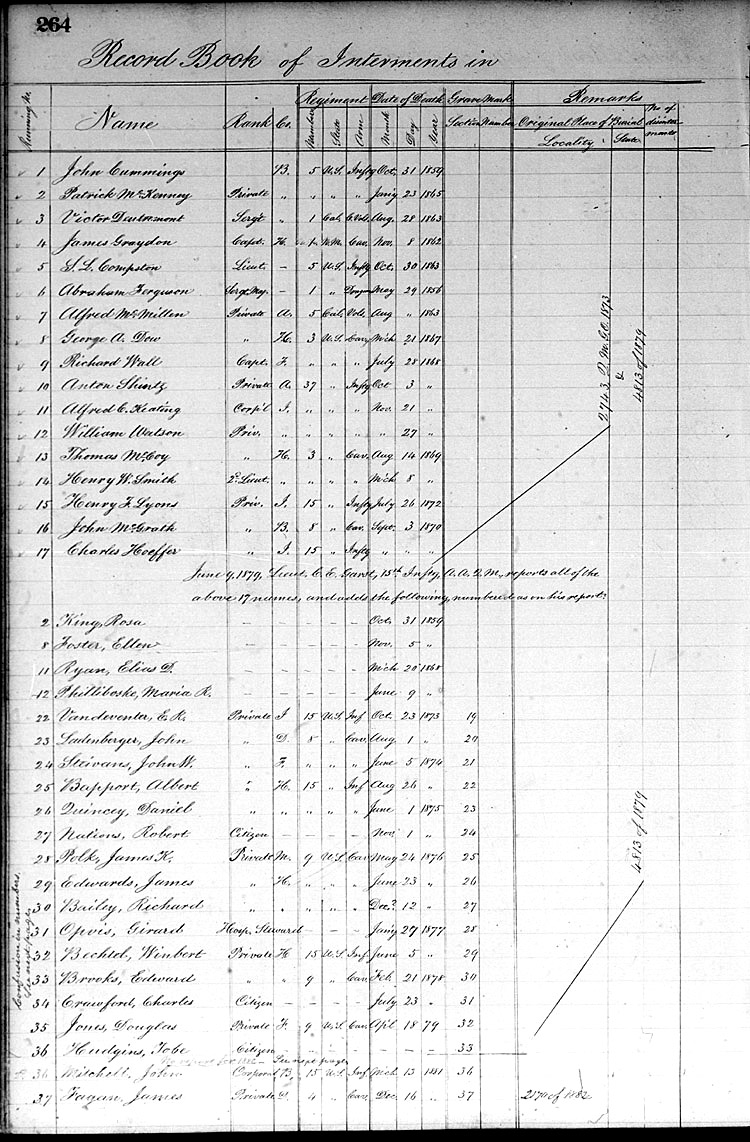 264
Record Book of Interments in
Running No. Name Rank Co. Regiment Date of Death Grave Mark Remarks
Number State Arm Month Day Year Section Number Original Place of Burial No. of disinterments
Locality State
1 John Cummings B. 5 U.S. Infty Oct. 31 1859
2 Patrick McKenney Private " " " " Jan'y 23 1865
3 Victor Sergt " 1 Cal. C.Vols. Aug. 28 1863
4 James Graydon Capt. H. 1 N.M. Cav. Nov. 8 1862
5 S. L. Compston Lieut. — 5 U.S. Infty Oct. 30 1863
6 Abraham Ferguson Sergt. Maj. — 1 " May 29 1856
7 Alfred McMillen Private A. 5 Cal. Vols. Aug " 1863
8 George A. Dow " H. 3 U.S. Cav. Mch 21 1867
9 Richard Wall Capt. F. " " " July 28 1868
10 Anton Shintz Private A. 37 " Infty Oct 3 "
11 Alfred C. Keating Corp'l I. " " " Nov. 21 "
12 William Watson Priv. " " " " " 27 "
13 Thomas McCoy " H. 3 " Cav. Aug 14 1869
14 Henry W. Smith 2d Lieut. " " " " Mch 8 "
15 Henry F. Lyons Priv. I. 15 " Infty July 26 1872
16 John McGrath " B. 8 " Cav. Sept. 3 1870
17 Charles Hoeffer " I. 15 " Infty " " "
2743 Q.M.G.O. 1873
&
4813 of 1879
June 9, 1879, Lieut. C. E. Garst, 15th Infty, A.A.Q.M., reports all of the
above 17 names, and adds the following, numbered as on his report:
2 King, Rosa — — — — — Oct. 31 1859
8 Foster, Ellen — — — — — Nov. 5 "
11 Ryan, Elias D. — — — — — Mch 20 1868
12 Philliboske, Maria R. — — — — — June 9 "
22 Vandeventer, E. K. Private I 15 U.S. Inf. Oct. 23 1873 19
23 Ladenberger, John " D. 8 " Cav. Aug. 1 " 20
24 Steivans, John W. " F. " " " June 5 1874 21
25 Bapport, Albert " H. 15 " Inf Aug 26 " 22
26 Quincey, Daniel " " " " " June 1 1875 23
27 Nations, Robert Citizen — — — — Nov. 1 " 24
28 Polk, James K. Private M. 9 U.S. Cav. May 24 1876 25
29 Edwards, James " H. " " " June 23 " 26
30 Bailey, Richard " " " " " Dec. 12 " 27
31 Opvis, Girard Hosp. Steward — — — Jan'y 27 1877 28
32 Bechtol, Winbert Private H 15 U.S. Inf. June 5 " 29
33 Brooks, Edward " " 9 " Cav. Feb. 21 1878 30
34 Crawford, Charles Citizen — — — — July 23 " 31
35 Jones, Douglas Private F. 9 U.S. Cav. Apl 18 79 32
36 Hudgins, Tobe Citizen — — — — — — — 33
4813 of 1879
Confusion in numbers,
See next page.
See next page
36 Mitchell, John Corporal B. 15 U.S. Inf. Mch 13 1881 36
37 Fagan, James Private D. 4 " Cav. Dec. 16 " 37 of 1882